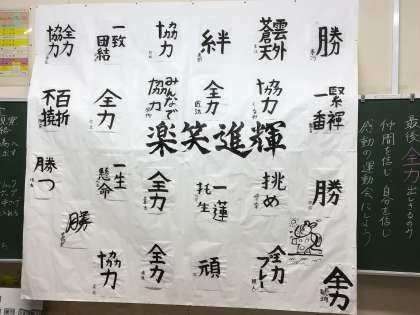 勝
雲外
蒼天
絆
協力
一致
団結
全力
協力
緊褌
一番
協力
全力
みんなで
協力
全力
百折
不撓
楽笑進輝
勝
挑め
一蓮
托生
全力
一生
懸命
勝つ
全力
プレー
頑
全力
協力
勝
全力
最後
全力
仲間を信じ自分を信じ
感動の運動会にしよう